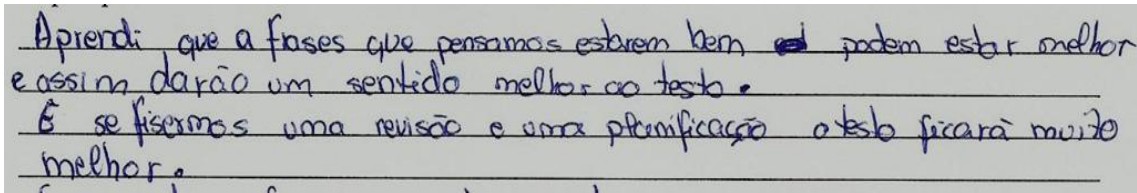 Aprendi, que a frases que pensamos estarem bem podem estar melhor
e assim darão um sentido melhor ao testo.
E se fisermos uma revisão e uma planificação o testo ficará muito
melhor.